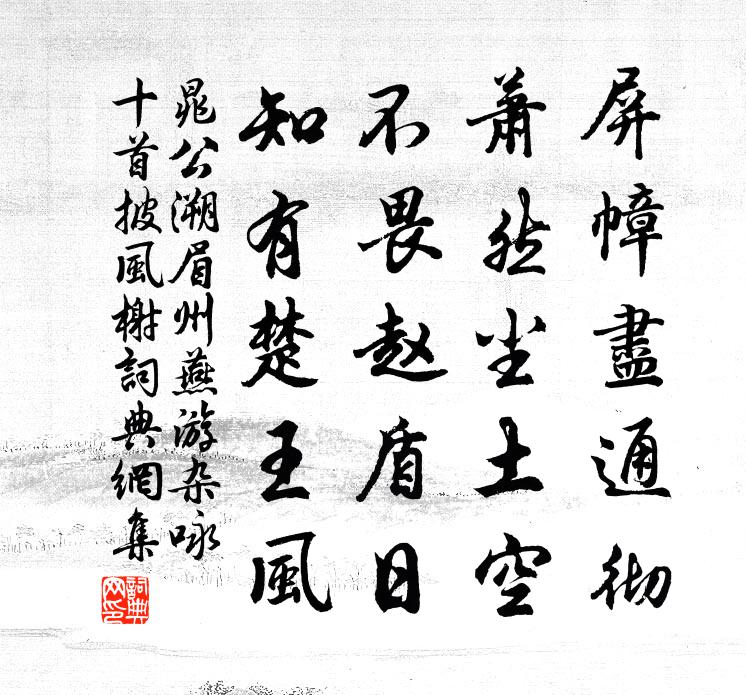 屏幛盡通彻
蕭然尘土空
不畏赵盾日
知有楚王風
晁公溯眉州燕游杂咏
十首披風榭詞典網集
詞典
网印